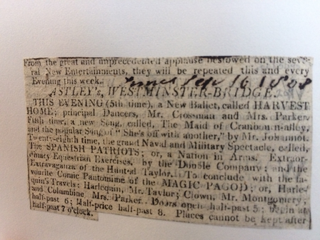 From the great and unprecedented applause bestowed on the seve-
ral New Entertainments, they will be repeated this and every
Evening this week.
1808
ASTLEY's, WESTMINSTER-BRIDGE.
THIS EVENING (5th time), a New Ballet, called HARVEST
HOME; principal Dancers, Mr. Crossman and Mrs. Parker.
Fifth time, a new Song, called, The Maid of
and the popular Song of "She's off with another," by Mr. Johannot.
Twenty-eighth time, the grand Naval and Military Spectacle, called,
The SPANISH PATRIOTS; or, a Nation in Arms. Extraor-
dinary Equestrian Exercises, by the Double Company; and the
Extravaganza of the Hunted Taylor. To conclude with the fa-
vourite Comic Pantomime of the MAGIC PAGOD; or, Harle-
quin's Travels: Harlequin, Mr. Taylor; Clown, Mr. Montgomery;
and Columbine, Mrs. Parker. Doors open half-past 5; begin at
half-past 6; Half-price half-past 8. Places cannot be kept after
half-past 7 o'clock.